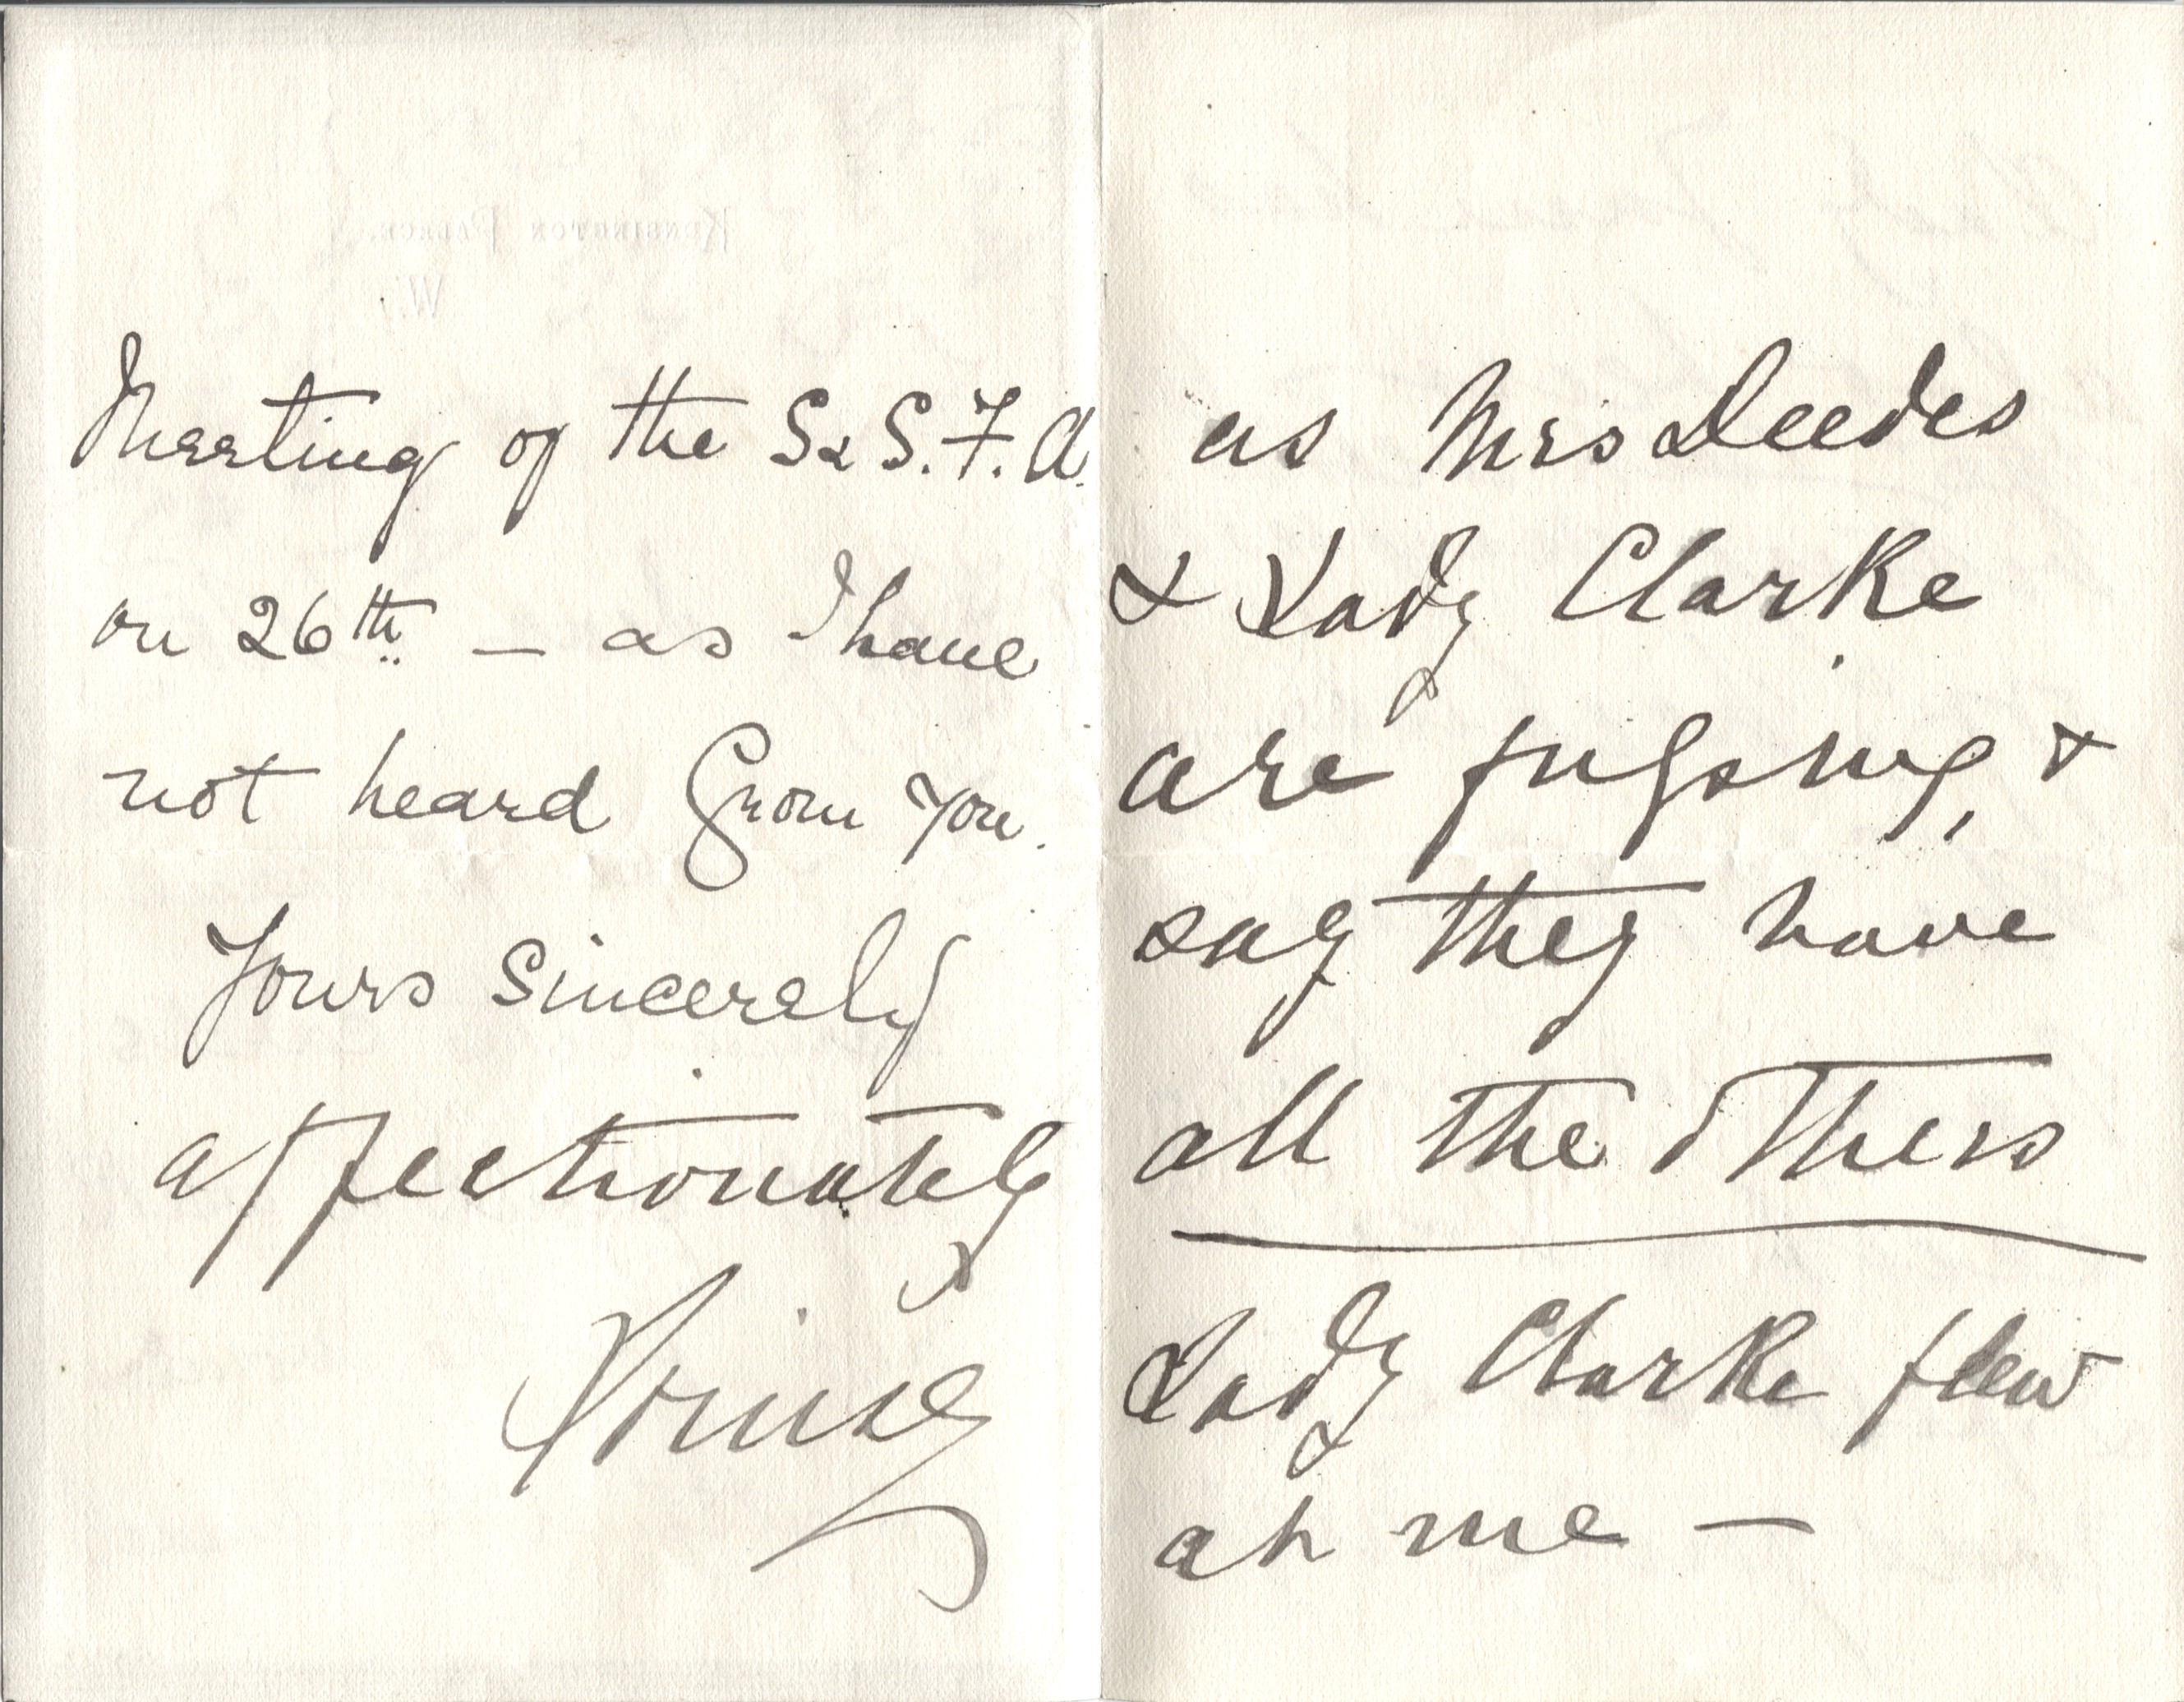 KENSINGTON PALACE.
W.
Meeting of the S & S.F.A.
on 26th — as I have
not heard from you.
Yours Sincerely
affectionately
Louise
as Mrs Deedes
& Lady Clarke
are fussing, &
say they have
all the others
Lady Clarke flew
at me —